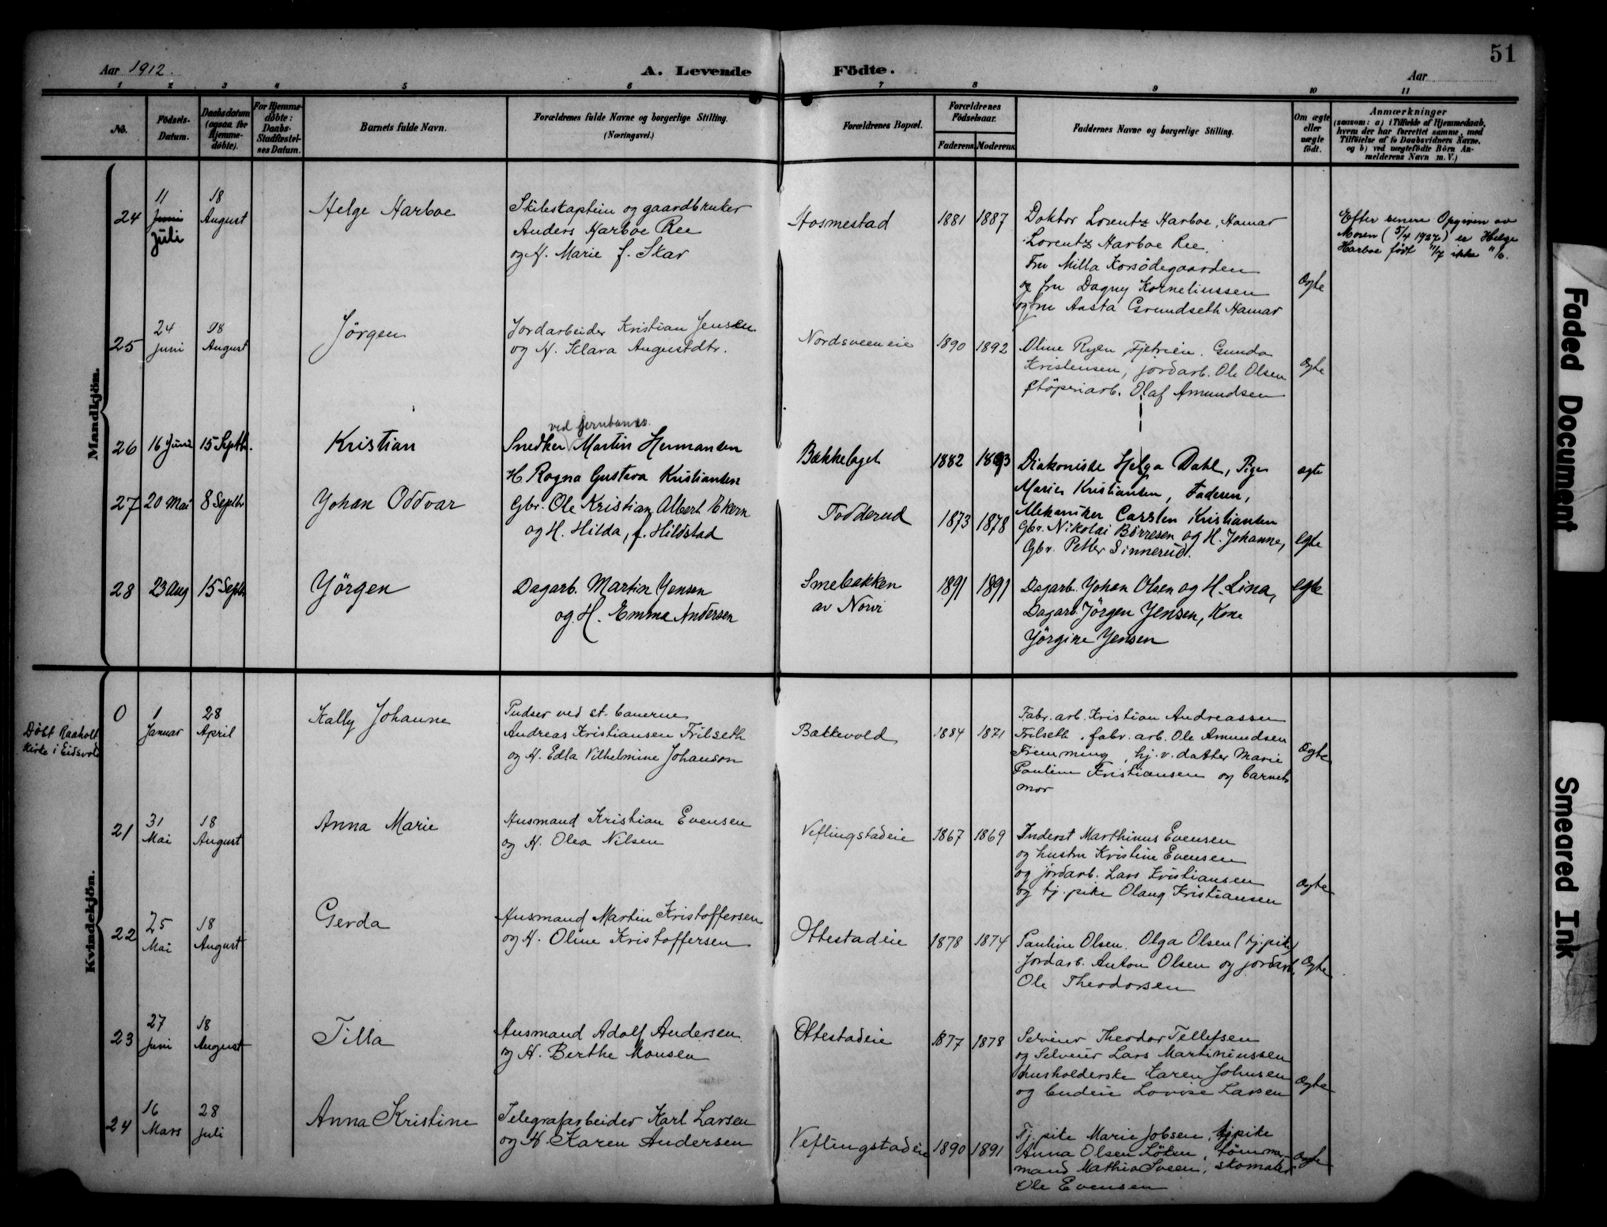 51
Aar 1912. A. Levende Födte. Aar
1 2 3 4 5 6 7 8 9 10 11
No.
Födsels-Datum.
Daabsdatum (ogsaa for Hjemmedöbte).
For Hjemmedöbte: Daabs-Stadfæstelsens Datum.
Barnets fulde Navn.
Forældrenes fulde Navne og borgerlige Stilling. (Næringsvei.)
Forældrenes Bopæl.
Forældrenes Födselsaar.
Faderens Moderens
Faddernes Navne og borgerlige Stilling.
Om ægte eller uægte födt.
Anmærkninger
(saasom: a) i Tilfælde af Hjemmedaab, hvem der har forrettet samme, med Tilföielse af to Daabsvidners Navne, og b) ved uægtefödte Börn Anmelderens Navn m. V.)
Mandkjön.
24
11 Juni Juli
18 August
Helge Harboe
Anders Harboe Ree
og H. Marie f. Skar
Hosmestad
1881 1887
Doktor Lorentz Harboe, Hamar
Lorentz Harboe Ree.
Fru Milla Korsödegaarden
og fru Dagny Korneliussen
og fru Aasta Grundseth Hamar
Ægte
Efter senere Opgiven av
Moren (5/4 1927) er Helge
Harboe født 11/7 ikke 11/6.
25
24 Juni
18 August
Jörgen
Jordarbeider Kristian Jensen
og H. Klara Augustdtr.
Nordsveeneie
1890 1892
Oline Ryen, Gunda
Kristensen, jordarb. Ole Olsen
Støperiarb. Olaf Amundsen
Ægte
26
16 Juni
15 Septb.
Kristian
ved Jernbanen
Snedker Martin Hermansen
H Ragna Gustava Kristiansen
Bækkelaget
1882 1893
Diakonisse Helga Dahl, Pige
Marie Kristiansen, Faderen,
Mekaniker Carsten Kristiansen
ægte
27
20 Mai
8 Septb
Johan Oddvar
Gbr. Ole Kristian Albert Ekern
og H. Hilda, f. Hildstad
Todderud
1873 1878
Gbr. Nikolai Börresen og H. Johanne,
Gbr. Petter Sinnerud.
Egte
28
23 Aug
15 Septb
Jörgen
Dagarb. Martin Jensen
og H. Emma Andersen
Smebakken
av Novi
1891 1891
Dagarb. Johan Olsen og H. Lina,
Dagarb Jörgen Jensen, Kone
Jörgine Jensen
Egte
Kvindekjön.
Döbt Raaholt
Kirke i Eidsvold
0
1 Januar
28 April
Kally Johanne
Pudser ved st. banerne
Andreas Kristiansen Trilseth
og H. Edla Vilhelmine Johanson
Bakkevold
1884
Fabr. arb. Kristian Andreassen
Trilseth, fabr. arb. Ole Amundsen
Fremming, hj. v. datter Marie
Pauline Kristiansen og barnets
mor
Ægte
21
31 Mai
18 August
Anna Marie
Husmand Kristian Evensen
og H. Olea Nilsen
Veflingstadeie
1867 1869
Inderst Marthinus Evensen
og hustru Kristine Evensen
og jordarb. Lars Kristiansen
og tj. pike Olaug Kristiansen
Ægte
22
25 Mai
18 August
Gerda
Husmand Martin Kristoffersen
og H. Oline Kristoffersen
Ottestadeie
1878 1874
Pauline Olsen. Olga Olsen (tj.pike)
Jordarb. Anton Olsen og jordarb.
Ole Theodorsen
Ægte
23
27 Juni
18 August
Tilla
Husmand Adolf Andersen
og H. Berthe Monsen
Ottestadeie
1877 1878
Selveier Theodor Tellefsen
og Selveier Lars Martiniussen
husholderske Karen Johnsen
og Lovise Larsen
Ægte
24
16 Mars
28 Juli
Anna Kristine
Telegrafarbeider Karl Larsen
og H. Karen Andersen
Veflingstadeie
1890 1891
Tj. pike Marie Jobsen, tjpike
Anna Olsen Löten, tömmermand
Mathias Sveen, skomaker
Ole Evensen
Ægte
Faded Document
Smeared Ink